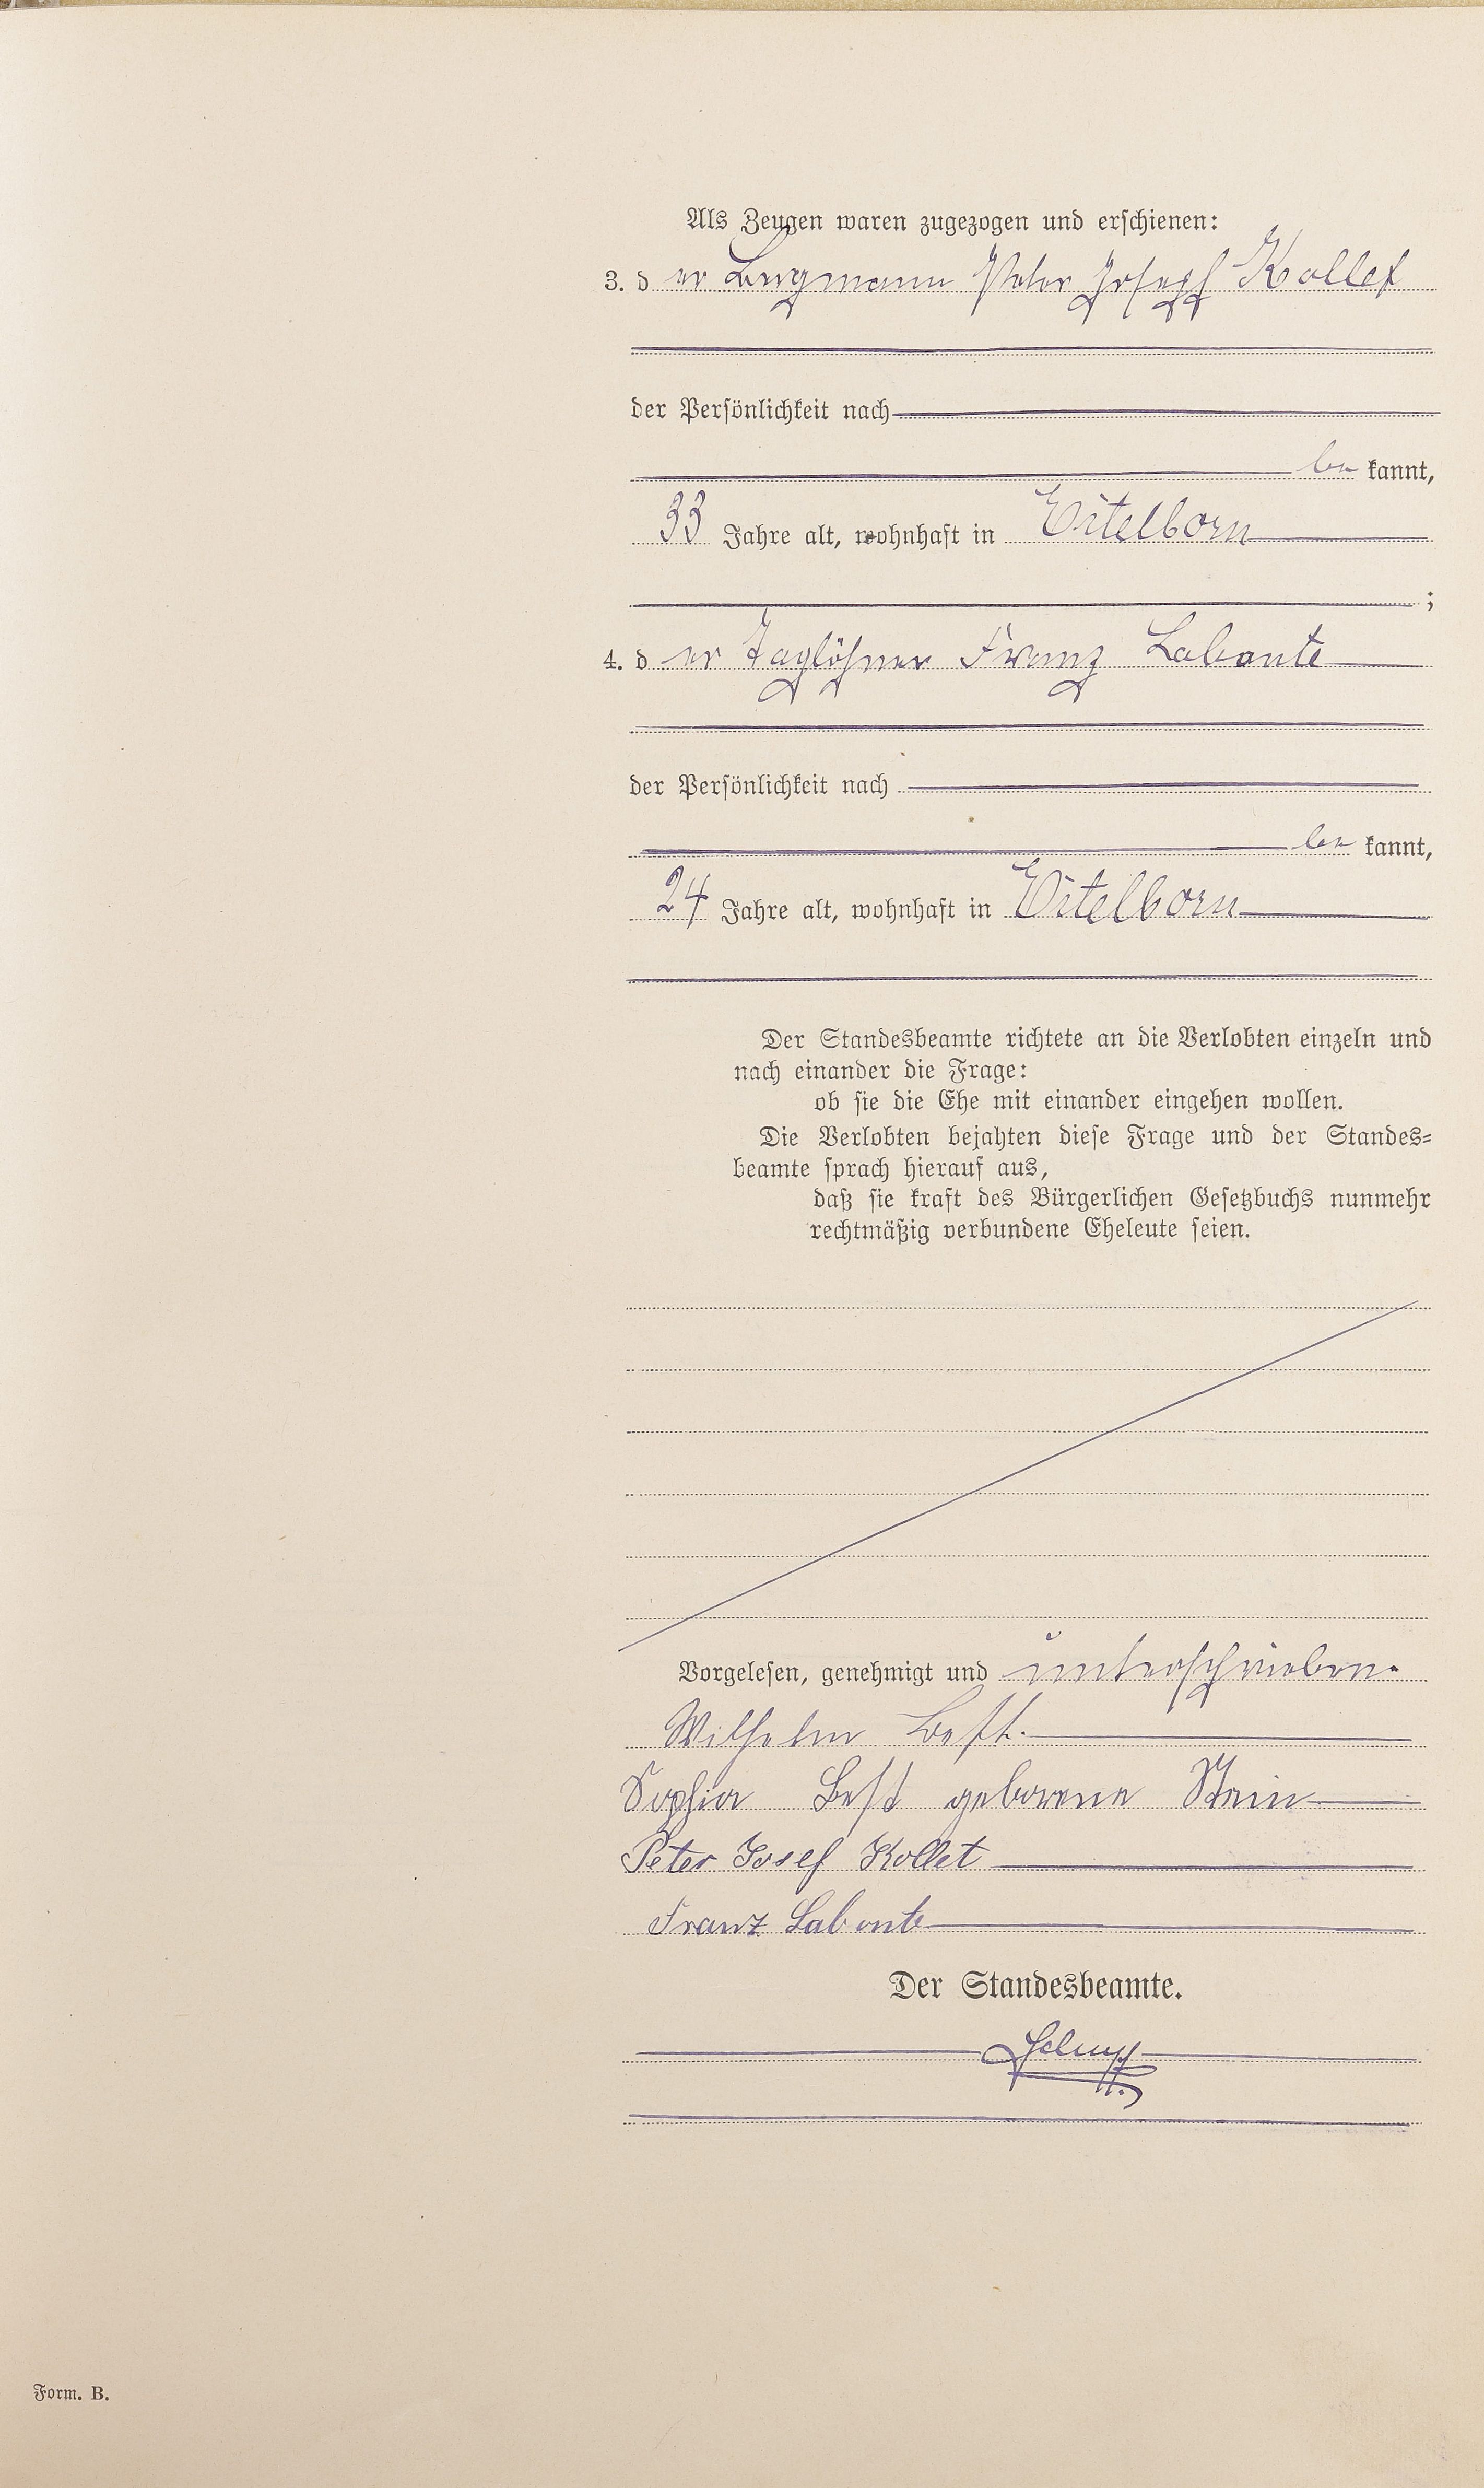 Als Zeugen waren zugezogen und erschienen:
3. d er Bergmann Peter Joseph Kollet
der Persönlichkeit nach
be kannt,
33 Jahre alt, wohnhaft in Eitelborn
;
4. d er Taglöhner Franz Labonte
der Persönlichkeit nach
be kannt,
24 Jahre alt, wohnhaft in Eitelborn
Der Standesbeamte richtete an die Verlobten einzeln und
nach einander die Frage:
ob sie die Ehe mit einander eingehen wollen.
Die Verlobten bejahten diese Frage und der Standes-
beamte sprach hierauf aus,
daß sie kraft des Bürgerlichen Gesetzbuchs nunmehr
rechtmäßig verbundene Eheleute seien.
Vorgelesen, genehmigt und unterschrieben.
Wilhelm Best.
Sophia Best geborene Stein
Peter Josef Kollet
Franz Labonte
Der Standesbeamte.
Form. B.